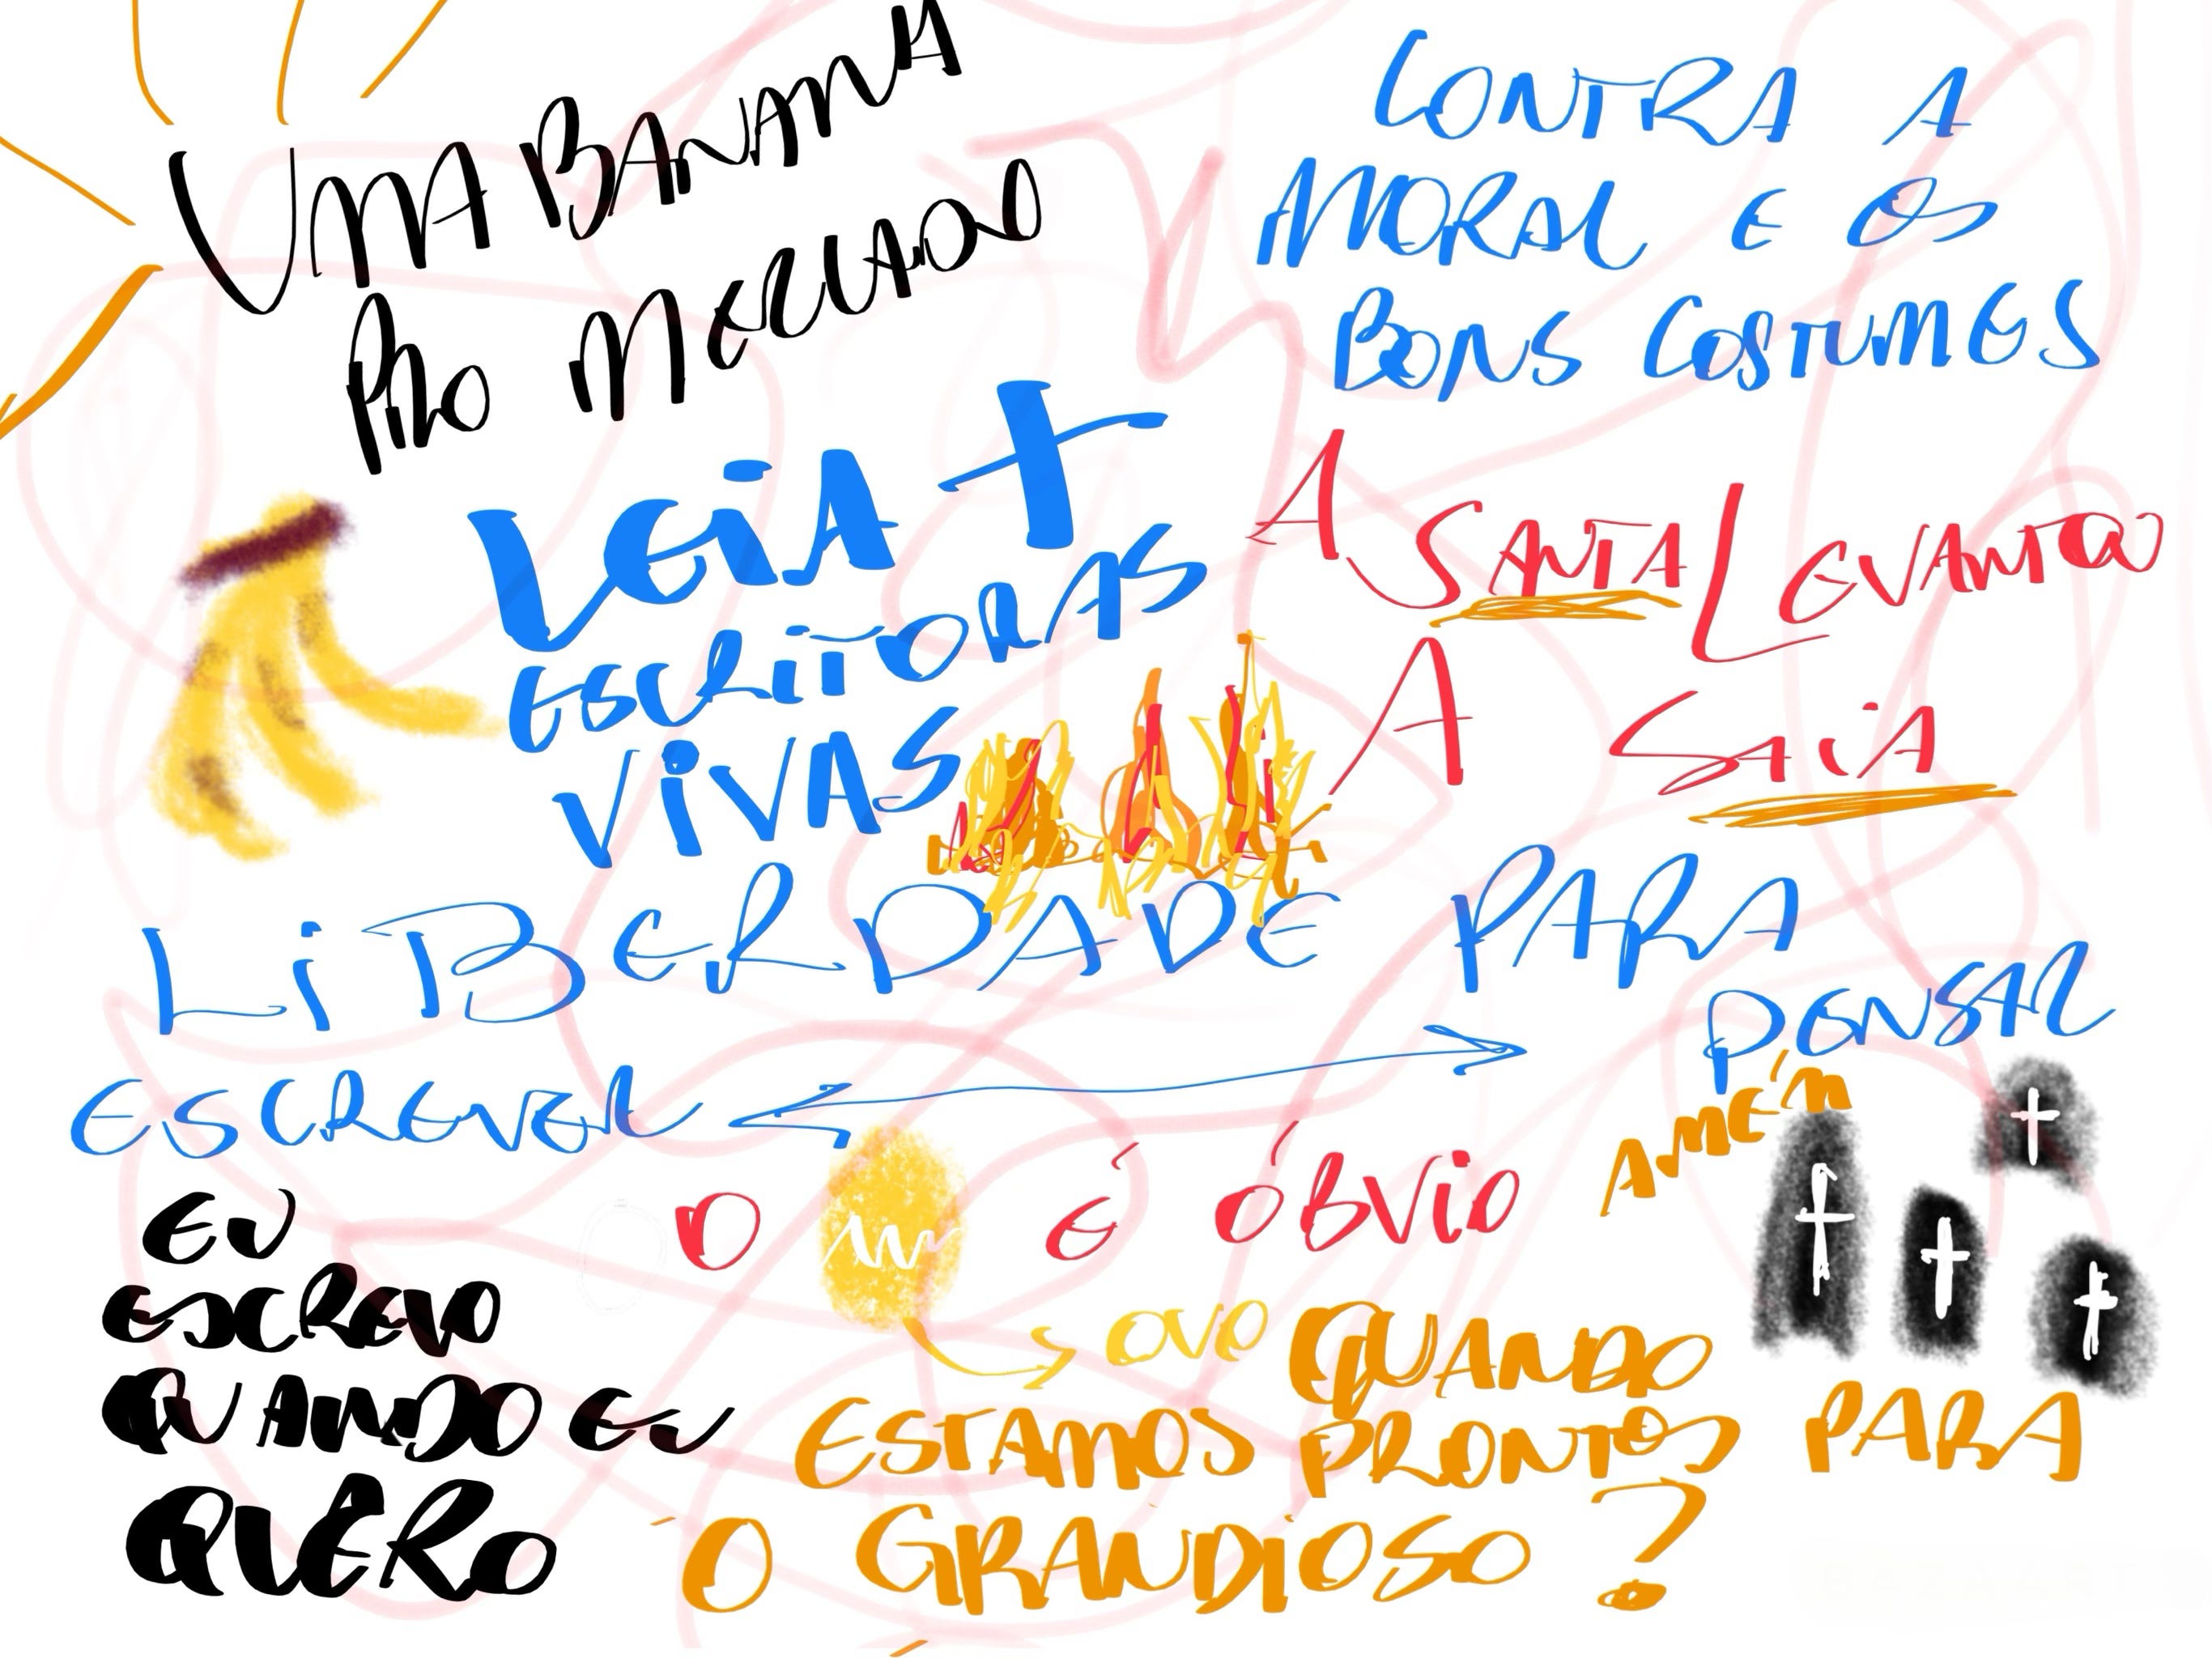 UMA BANANA
PRO MERCADO
CONTRA A
MORAL E OS
BONS COSTUMES
LEIA +
ESCRITORAS
VIVAS
A SANTA LEVANTOU
A SAIA
LIBERDADE PARA
PENSAR
ESCREVER
AMÉM
EU
ESCREVO
QUANDO EU
QUERO
O É ÓBVIO
OVO
QUANDO
ESTAMOS PRONTOS PARA
O GRANDIOSO ?